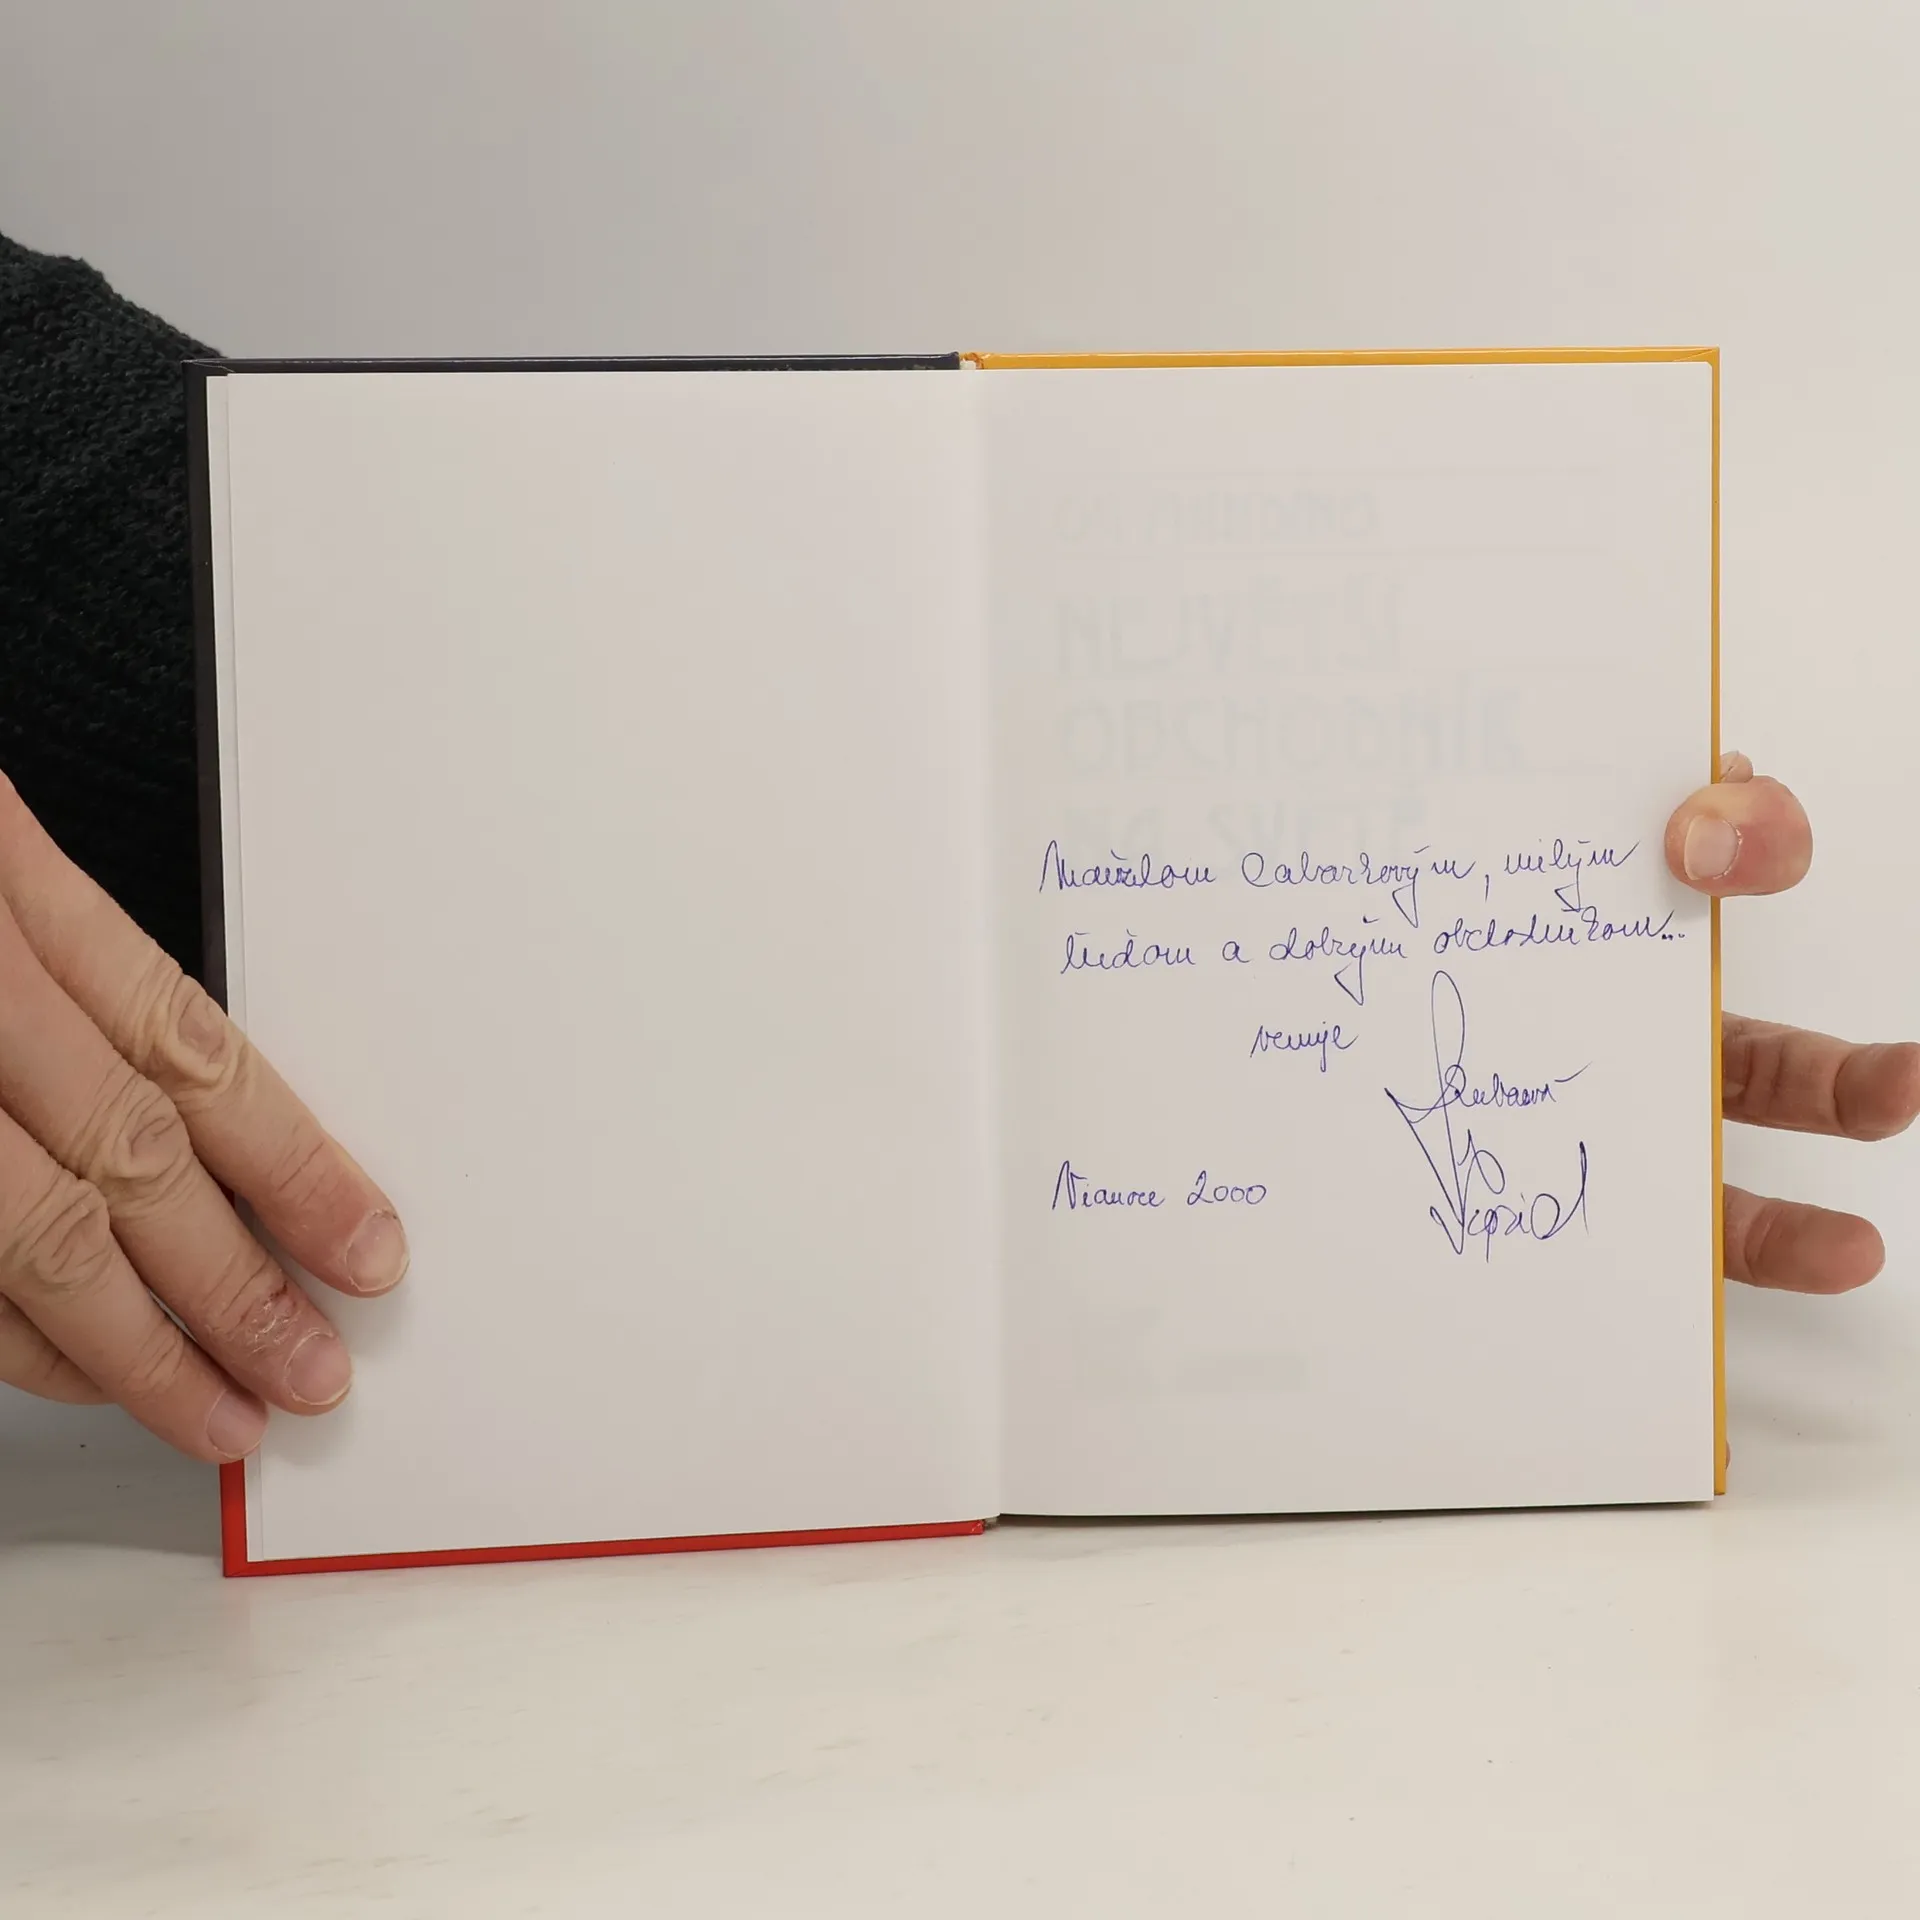 OG MANDINO
NEJVĚTŠÍ
OBCHODNÍK
NA SVĚTĚ
Manželom Cabarkovým, milým
ľuďom a dobrým obchodníkom...
venuje
Vianoce 2000